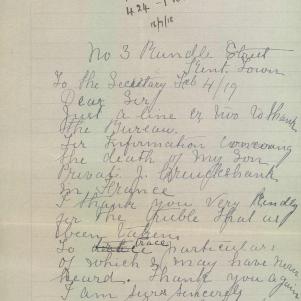 424
12/2/18
No 3 Rundle Street
Kent Town
To the Secretary Feb 4/19
Dear Sir
Just a line or two to thank
the Bureau
for Information concerning
the death of My Son
Private J. Cruickshank
In France
I thank you Very Kindly
for the truble that as
been taken
to trace particulars
of which I may have never
heard. Thank you again
I am Sir Sincerely